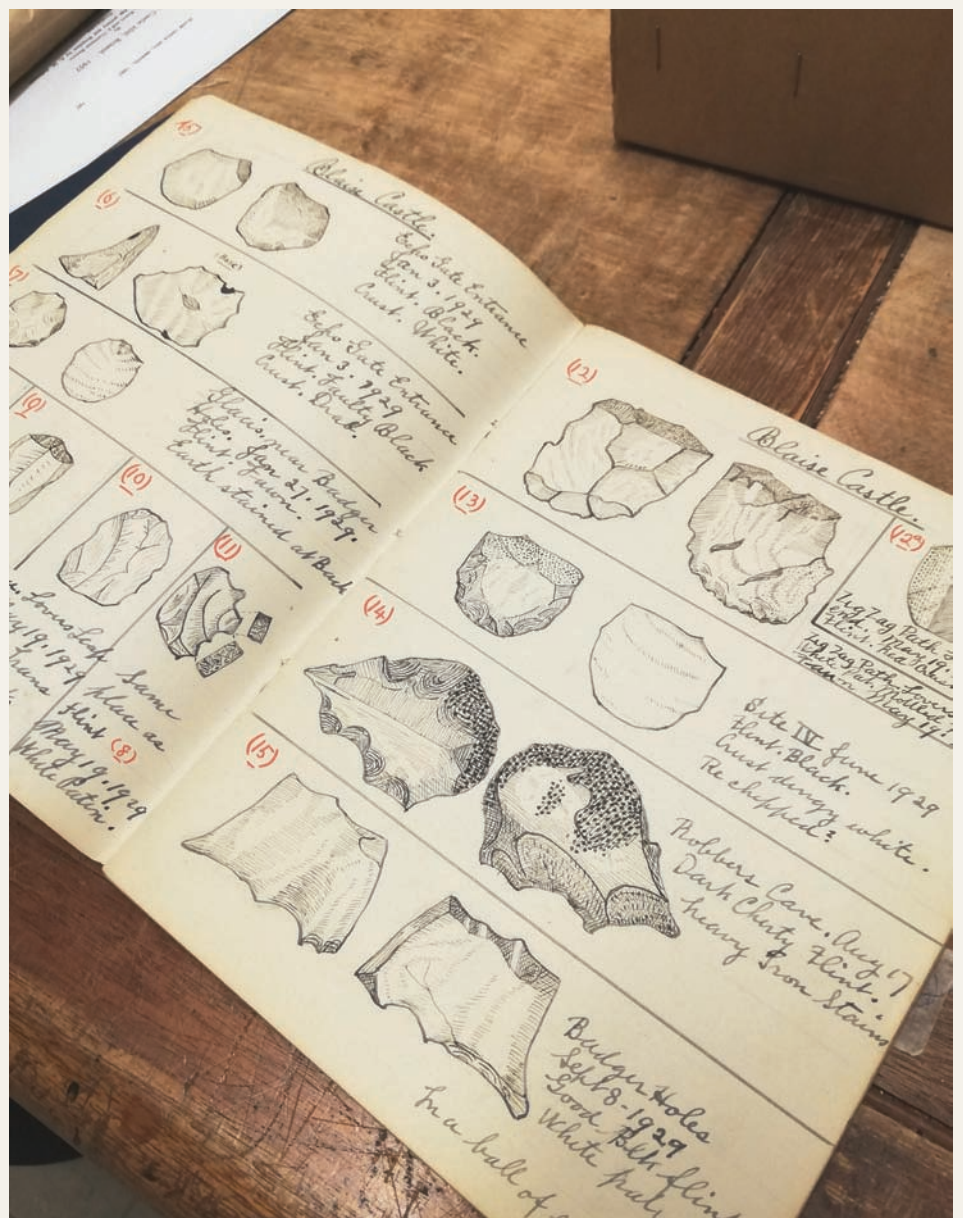 (5)
Blaise Castle.
Echo Gate Entrance
Jan 3. 1929
Flint. Black.
Crust. White.
(6)
Echo Gate Entrance
Jan 3. 1929
Flint. Faulty Black
Crust. Drab.
(7)
Glacis. near Badger
Hole. Jan 27. 1929.
Flint. Fawn.
Earth stained at Back
(9)
(10)
Lovers Leap
May 19. 1929
(11)
Same
place as
(8)
Flint
May 19. 1929
White Patin.
Blaise Castle.
(12)
(12a)
Zig Zag Path
Zig Zag Path. Lovers
May 19
(13)
Site IV June 1929
Flint. Black.
Crust dingy white.
Re chipped?
(14)
Robbers Cave. Aug 17
Dark Cherty Flint.
heavy Iron Stains
(15)
Badger Holes
Sept 8 - 1929
Good Blk flint
White
In a ball of